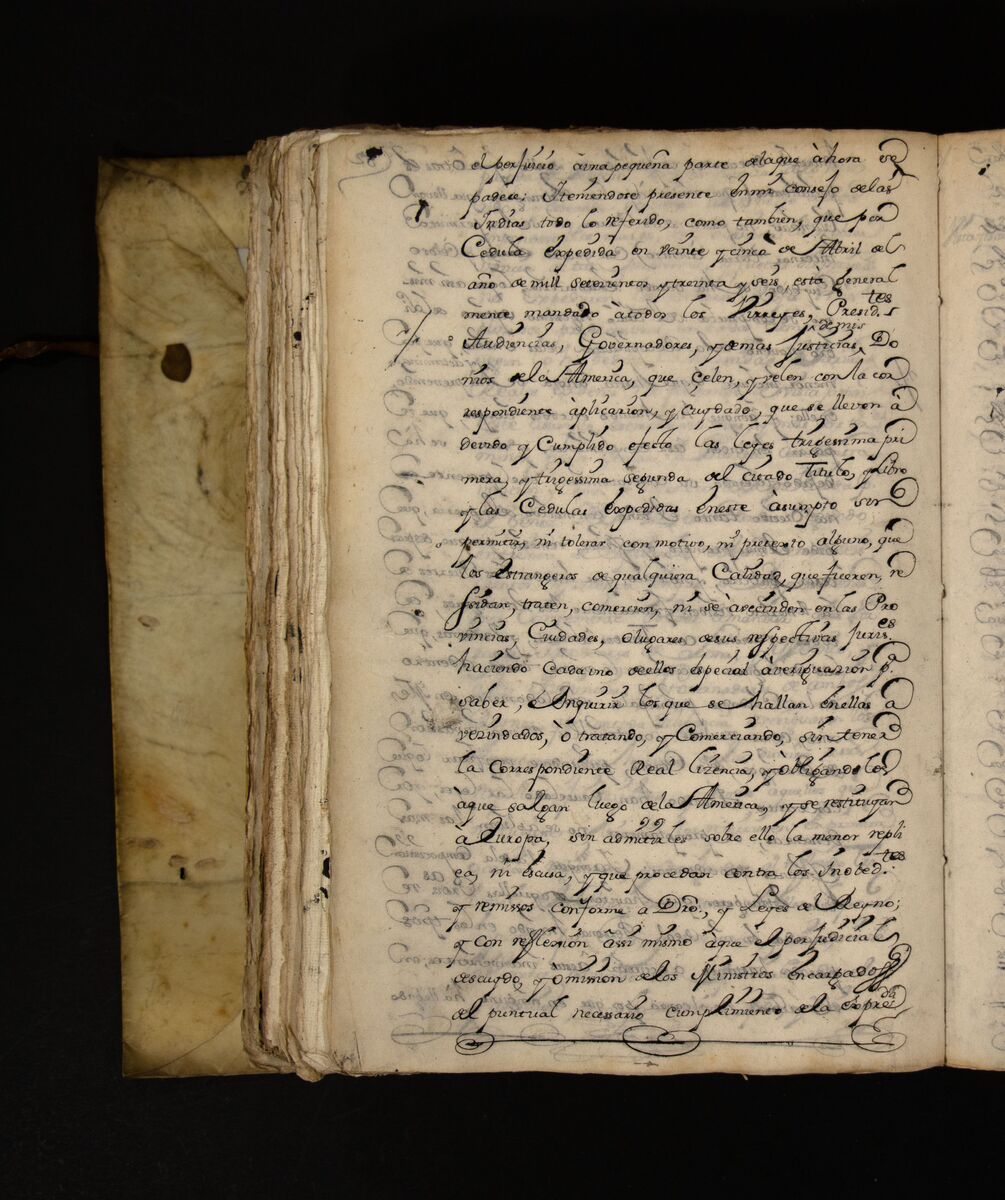 el perjuicio à una pequeña parte de la que à hora se
padece: Y teniendose presente en mi consejo de las
Indias todo lo referido, como tambien, que por
Cedula expedida en veinte y cinco de Abril del
año de mill setecientos y treinta y seis, està general
mente mandado à todos los Virreyes, Presid.tes
Audiencias, Governadores, y demas Justicias de mis Do
nios de la America, que çelen, y velen con la cor
respondiente àplicacion, y cuydado, que se lleven à
devido y Cumplido efecto las leyes trigessima pri
mera, y trigessima segunda del citado Titulo, y Libro
y las Cedulas expedidas en este àsumpto sin
permitir, ni tolerar con motivo, ni pretexto alguno, que
los Estrangeros de qualquiera Calidad, que fueren, re
sidan, traten, comercien, ni se àvecinden en las Pro
vincias, Ciudades, o lugares de sus respectivas Juris.es
haciendo Cada uno de ellos especial àveriguacion p.a
saber, è Inquirir los que se hallan en ellas a
vezindados, ò tratando, y Comerciando, sin tener
la Correspondiente Real lizencia, y obligandolos
à que salgan luego de la America, y se restituyan
à Europa, sin admitirles sobre ello la menor repli
ca, ni Escusa, y que procedan contra los Inobed.tes
y remissos conforme a Dro., y Leyes del Reyno;
y con reflexion àssi mismo àque el perjudicial
descuydo, y òmision de los Ministros encargados
del puntual necessario cumplimiento de la expresda